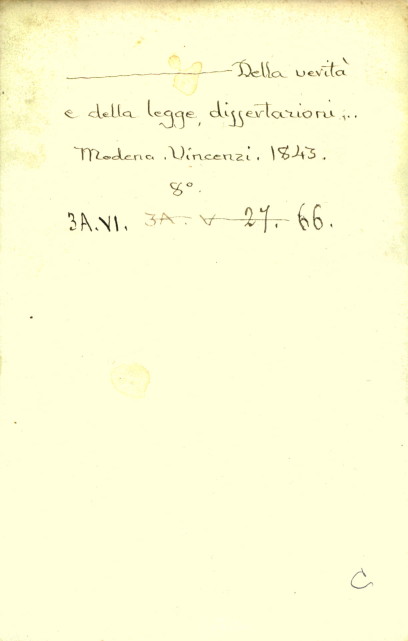 ——— Della verità
e della legge, dissertazioni...
Modena. Vincenzi. 1843.
8°.
3A.VI. 3A. V 27. 66.
C